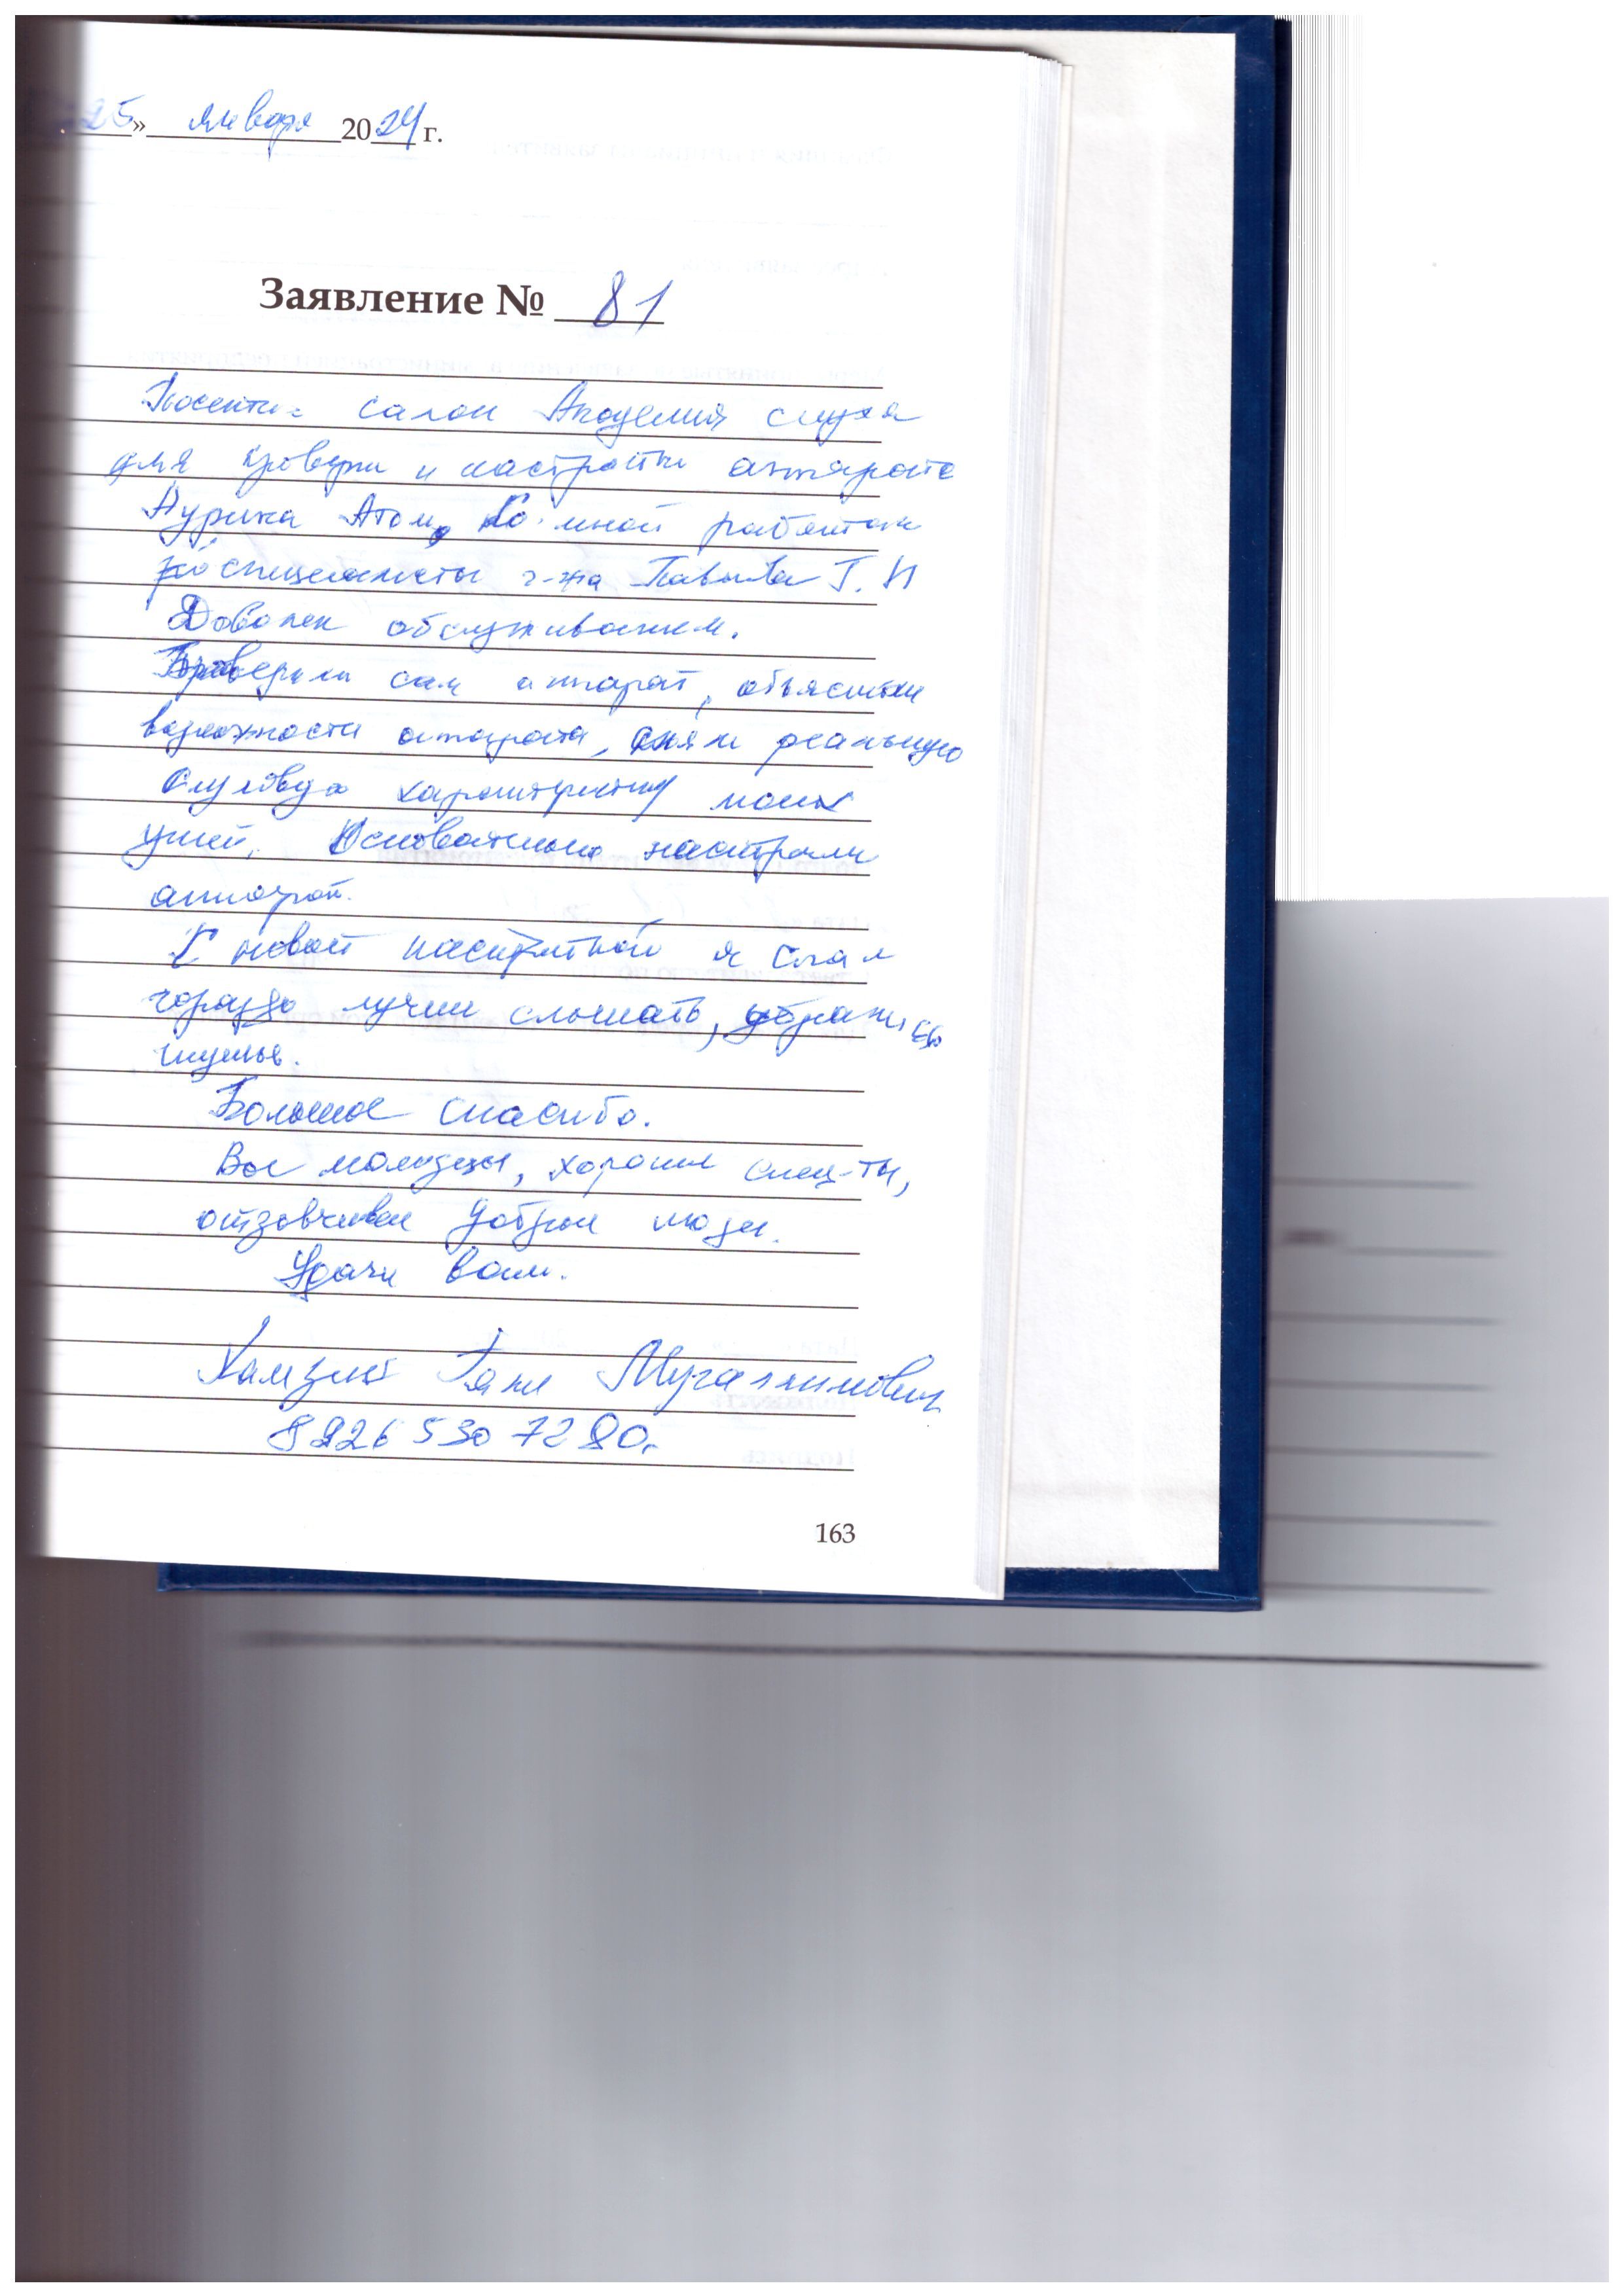 25» января 2024 г.
Заявление № 81
Посетил салон Академия слуха
для проверки и настройки аппарата
Аурика Атом, Со мной работали
специалисты г-жа Т. И
Доволен обслуживанием.
Проверили сам аппарат, объяснили
возможности аппарата, сняли реальную
слуховую характеристику моих
ушей. Основательно настроили
аппарат.
С новой настройкой я стал
гораздо лучше слышать, убрались
шумы.
Большое спасибо.
Вы молодцы, хорошие спец-ты,
отзывчивые добрые люди.
Удачи вам.
Хамзин
8926 530 72 80.
163